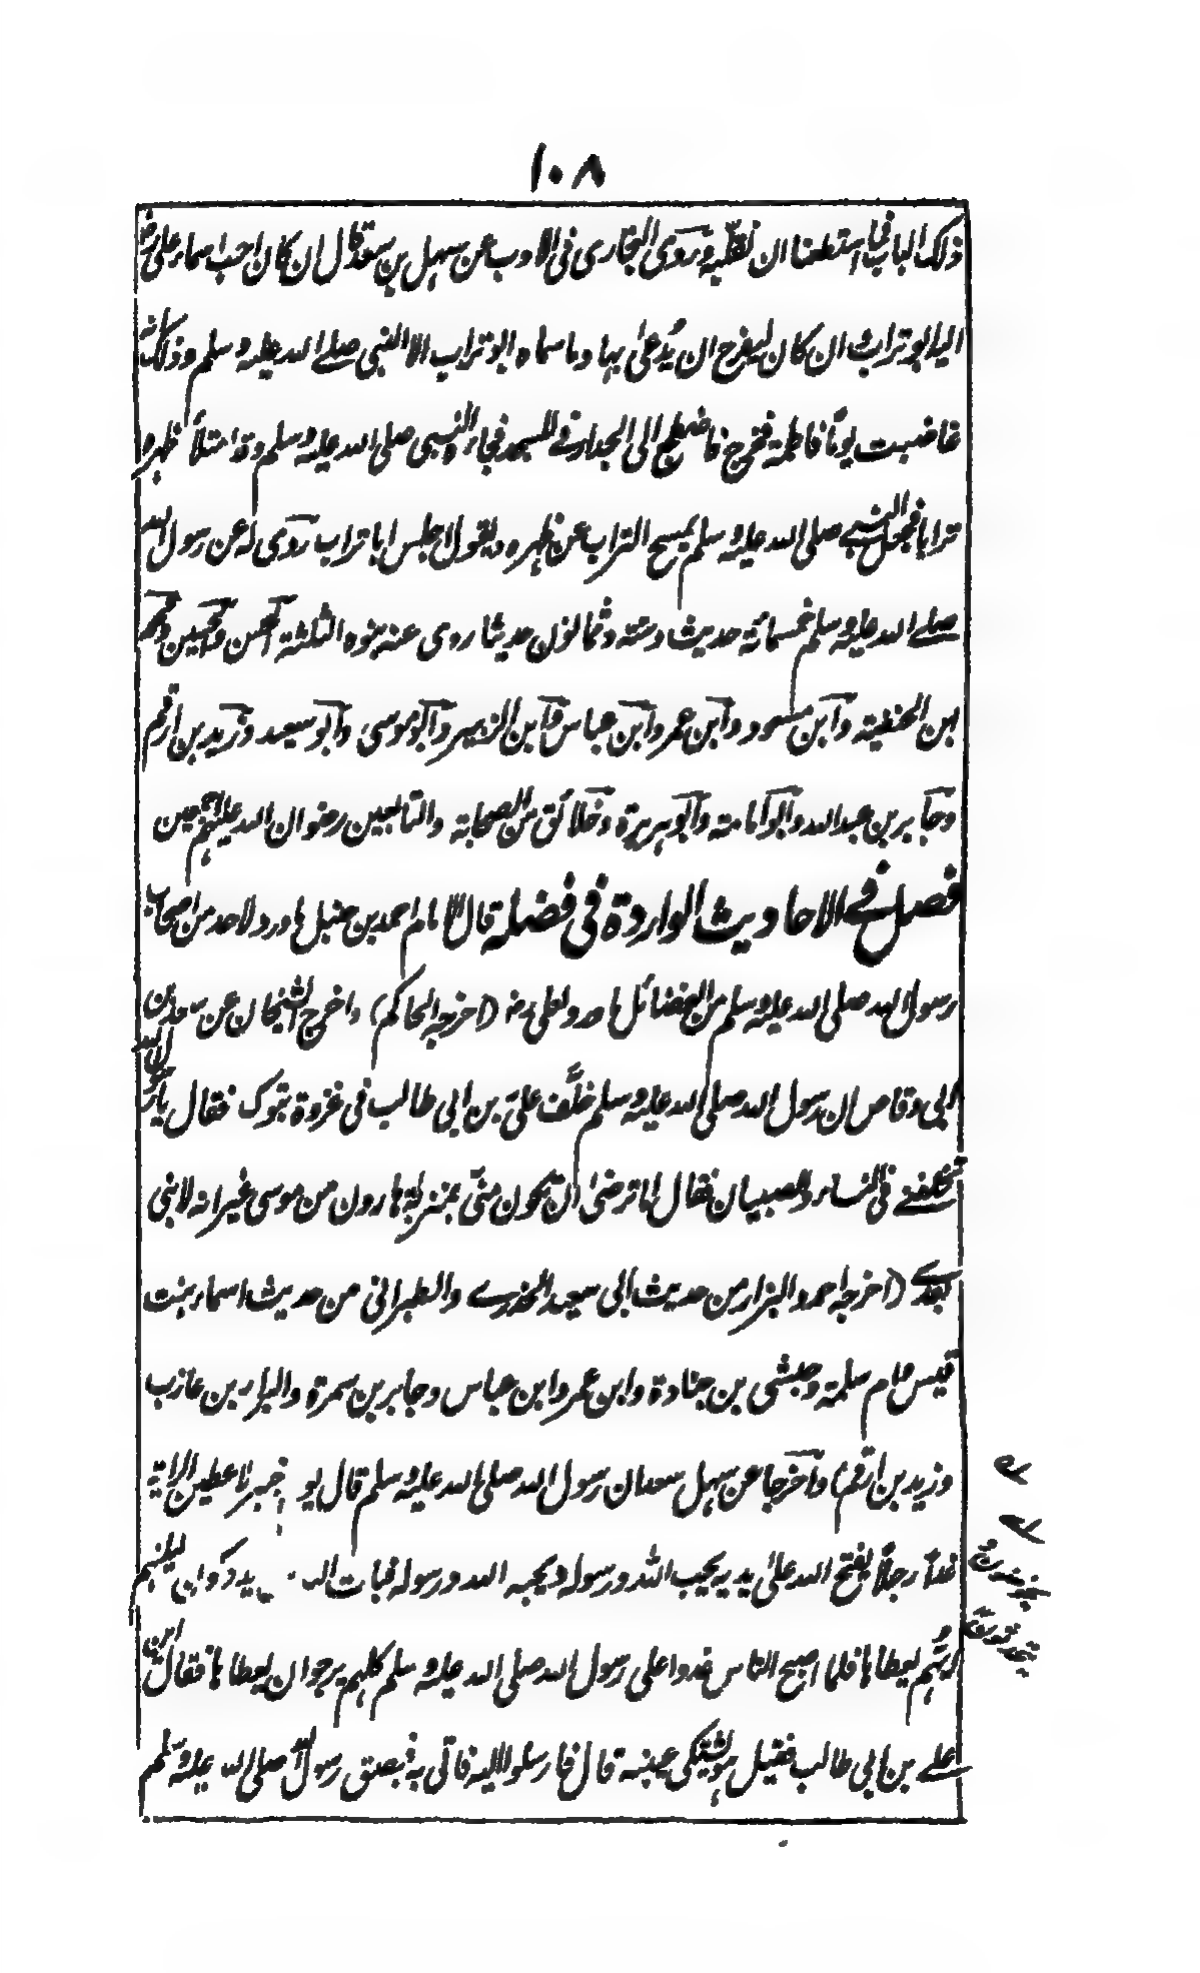 ١٠٨
ذلك الباب فما استطعنا ان نقلبه وروى البخارى فى الادب عن سهل بن سعد قال ان كان احب اسماء على رض
اليه ابو تراب وان كان ليفرح ان يُدعى بها وما سماه ابو تراب الا النبى صلے الله عليه وسلم وذلك انه
غاضبت يومًا فاطمة فخرج فاضطجع الى الجدار فے المسجد فجاءه النبى صلى الله عليه وسلم وقد امتلأ ظهره
ترابا فجعل النبے صلى الله عليه وسلم يمسح التراب عن ظهره ويقول اجلس ابا تراب روى له عن رسول الله
صلے الله عليه وسلم خمسمائة حديث وستة وثمانون حديثا روى عنه بنوه الثلثة الحسن والحسين ومحمد
ابن الحنفية وابن مسعود وابن عمر وابن عباس وابن الزبير وابو موسى وابو سعيد وزيد بن ارقم
وجابر بن عبد الله وابو امامة وابو هريرة وخلائق من الصحابة والتابعين رضوان الله عليهم اجمعين
فصل فے الاحاديث الواردة فى فضله قال الامام احمد بن حنبل ما ورد لاحد من اصحاب
رسول الله صلى الله عليه وسلم من الفضائل ما ورد لعلى رضه (اخرجه الحاكم) واخرج الشيخان عن سعد بن
ابى وقاص ان رسول الله صلى الله عليه وسلم خلَّف على بن ابى طالب فى غزوة تبوك فقال يا رسول الله
تخلفنے فى النساء والصبيان فقال اما ترضىٰ ان تكون منّى بمنزلة هارون من موسى غير انه لا نبى
بعدے (اخرجه احمد والبزار من حديث ابى سعيد الخدرے والطبرانى من حديث اسماء بنت
قيس وام سلمة وحبشى بن جنادة وابن عمر وابن عباس وجابر بن سمرة والبراء بن عازب
وزيد بن ارقم) واخرجا عن سهل بن سعد ان رسول الله صلى الله عليه وسلم قال يوم خيبر لاعطين الراية
غداً رجلاً يفتح الله علىٰ يديه يحب الله ورسوله ويحبه الله ورسوله فبات الناس يدوكون ليلتهم
ايُّهم يعطاها فلما اصبح الناس غدوا على رسول الله صلى الله عليه وسلم كلهم يرجو ان يعطاها فقال اين
علے بن ابى طالب فقيل هو يشتكى عينيه قال فارسلوا اليه فاتى به فبصق رسول الله صلى الله عليه وسلم